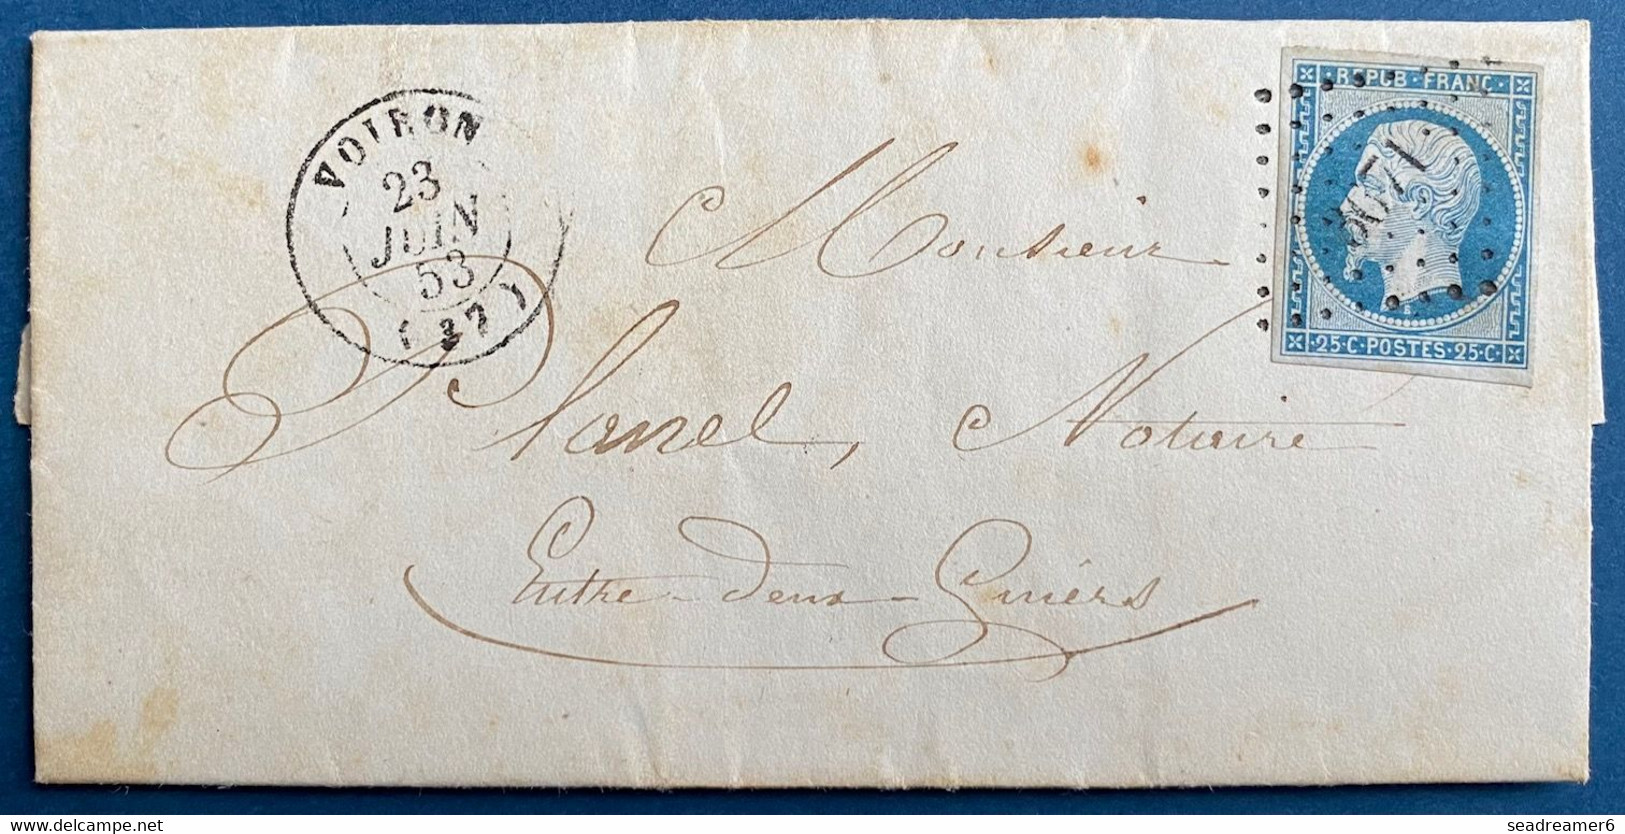 VOIRON
23
JUIN
53
(37)
REPUB·FRANC·
3671
B
25·C·POSTES·25·C·
Monsieur
Planel, Notaire
Entre-deux-Guiers
www.delcampe.net
seadreamer6